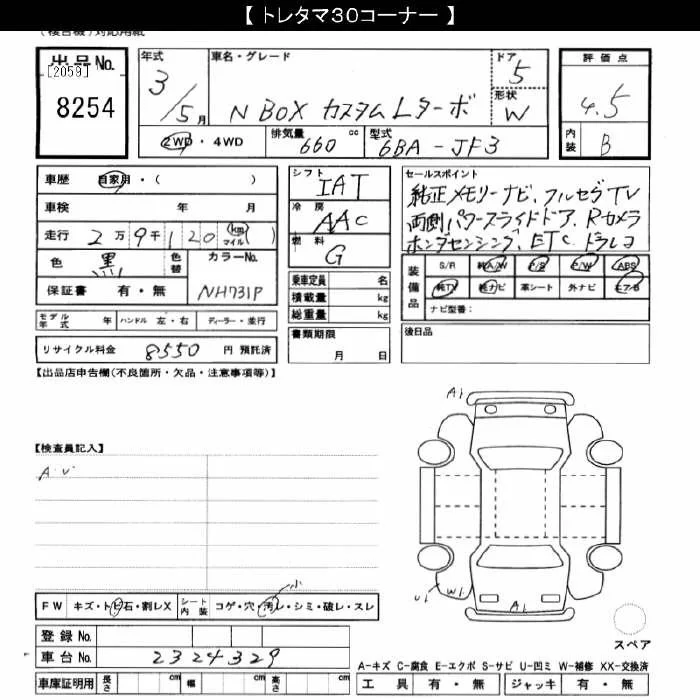 【トレタマ30コーナー】
(複合機)対応用紙
出品No. [2059] 8254
年式 3/5月
車名・グレード N BOX カスタムLターボ
ドア 5
形状 W
評価点 4.5
内装 B
2WD・4WD 排気量 660 cc 型式 6BA-JF3
車歴 自家用・( )
車検 年 月
走行 2万9千120 (km マイル)
色 黒 色替 カラーNo. NH731P
保証書 有・無
モデル年式 年 ハンドル 左・右 ディーラー・並行
リサイクル料金 8550 円 預託済
シフト IAT
冷房 AAC
燃料 G
乗車定員 名
積載量 kg
総重量 kg
書類期限 月 日
セールスポイント
純正メモリーナビ、フルセグTV
両側パワースライドドア、Rカメラ
ホンダセンシング、ETC、ドラレコ
装備品 S/R 純A/W P/S P/W ABS
純TV 純ナビ 革シート 外ナビ エアB
ナビ型番:
後日品
【出品店申告欄(不良箇所・欠品・注意事項等)】
【検査員記入】
A.U
A1
U1 W1 A1
スペア
FW キズ・トビ石・割レX シート内装 コゲ・穴・汚レ・シミ・破レ・スレ
小
登録No.
車台No. 2324329
車庫証明用 長さ cm 幅 cm 高さ cm
A-キズ C-腐食 E-エクボ S-サビ U-凹ミ W-補修 XX-交換済
工具 有・無 ジャッキ 有・無